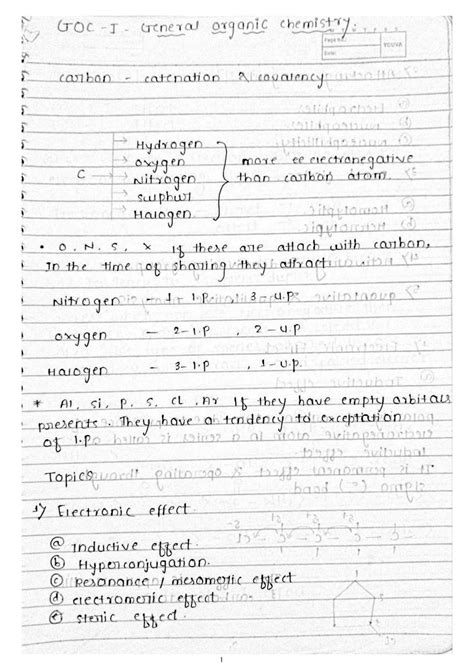 GOC-I- General organic chemistry.
Page No.:
Date:
YOUVA
carbon - catenation & covalency
C
Hydrogen
oxygen
Nitrogen
sulphur
Halogen.
more ee electronegative
than carbon atom.
• O, N, S, X If these are attach with carbon,
In the time of sharing they attract.
Nitrogen - 1 - l.p. , 3 - u.p.
oxygen - 2 - l.p , 2 - u.p
Halogen - 3 - l.p , 1 - u.p.
* Al, Si, P, S, Cl, Ar If they have empty orbitals
presents. They have a tendency to exceptation
of l.p
Topics
1) Electronic effect.
(a) Inductive effect.
(b) Hyperconjugation.
(c) Resonance / mesomeric effect
(d) electromeric effect.
(e) steric effect.
1